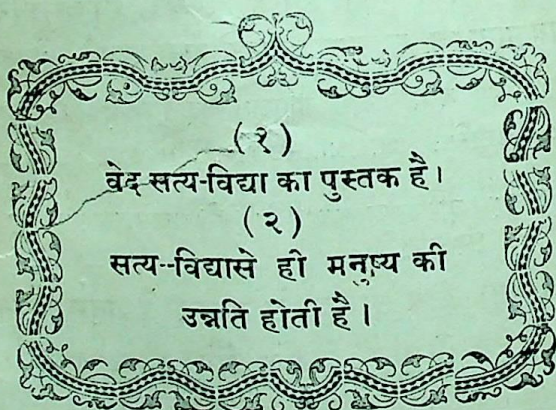 (१)
वेद सत्य-विद्या का पुस्तक है।
(२)
सत्य--विद्यासे ही मनुष्य की
उन्नति होती है।